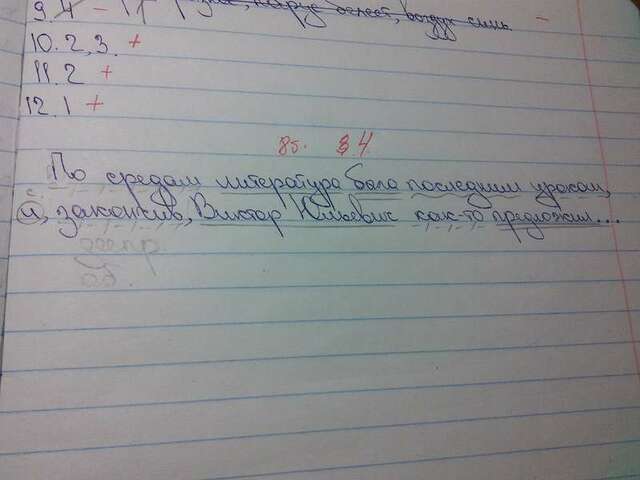 9. 4 - воздух синь. -
10. 2, 3. +
11. 2 +
12. 1 +
8б. 4
По средам литература была последним уроком,
с.
и, закончив, Виктор Юльевич как-то предложил...